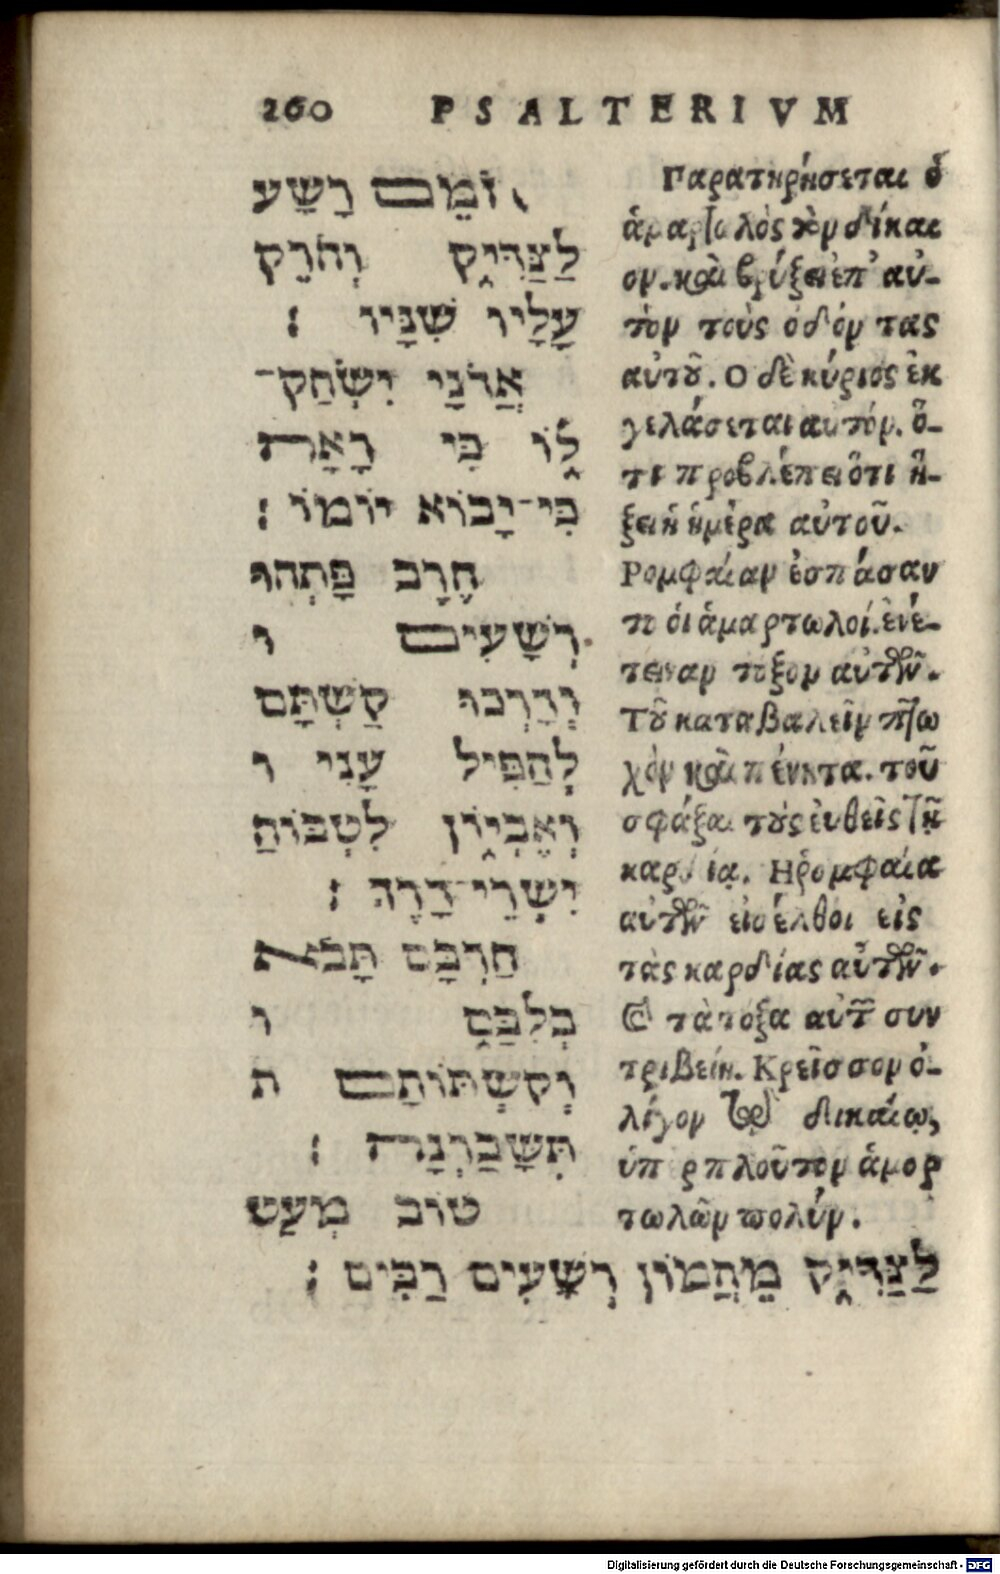 260 PSALTERIVM
זוֹמֵם רָשָׁע
לַצַּדִּיק וְחֹרֵק
עָלָיו שִׁנָּיו :
אֲדֹנָי יִשְׂחַק־
לוֹ כִּי רָאָה
כִּי־יָבוֹא יוֹמוֹ :
חֶרֶב פָּתְחוּ
רְשָׁעִים ו
וְדָרְכוּ קַשְׁתָּם
לְהַפִּיל עָנִי ו
וְאֶבְיוֹן לִטְבוֹחַ
יִשְׁרֵי־דָרֶךְ :
חַרְבָּם תָּבֹא
בְלִבָּם ו
וְקִשְּׁתוֹתָם ת
תִּשָּׁבַרְנָה :
טוֹב מְעַט
לַצַּדִּיק מֵהֲמוֹן רְשָׁעִים רַבִּים :
Παρατηρήσεται ὁ
ἁμαρτωλὸς τὸν δίκαι
ον. καὶ βρύξει ἐπ' αὐ-
τὸν τοὺς ὀδόντας
αὐτοῦ. Ο δὲ κύριος ἐκ
γελάσεται αυτόν. ὅ-
τι προβλέπει ὅτι ἥ-
ξει ἡ ἡμέρα αὐτοῦ.
Ρομφαίαν ἐσπάσαν
το ὁι ἁμαρτωλοί. ἐνέ-
τειναν τόξον αὐτῶν.
Τοῦ καταβαλεῖν πτω
χὸν καὶ πένητα. τοῦ
σφάξαι τοὺς ἐυθεῖς τῇ
καρδίᾳ. Η ῥομφαία
αὐτῶν εἰσέλθοι εἰς
τὰς καρδίας αὐτῶν.
καὶ τὰ τόξα αὐτῶν συν
τριβείη. Κρεῖσσον ὀ-
λίγον τῷ δικαίῳ,
ὑπὲρ πλοῦτον ἁμαρ
τωλῶν πολύν.
Digitalisierung gefördert durch die Deutsche Forschungsgemeinschaft - DFG